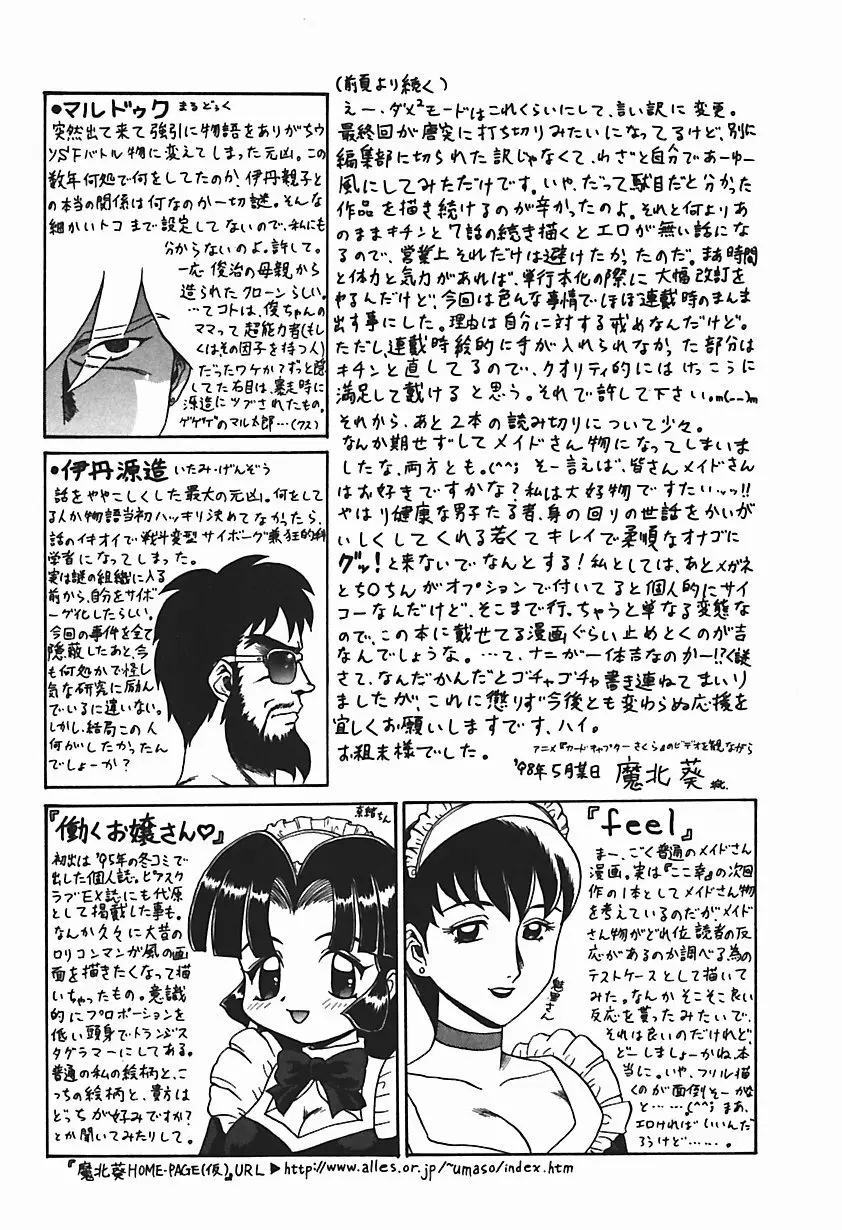 ●マルドゥク まるどぅく
突然出て来て強引に物語をありがちウ
ソSFバトル物に変えてしまった元凶。この
数年何処で何をしてたのか、伊丹親子と
の本当の関係は何なのか一切謎。そんな
細かいトコまで設定してないので、私にも
分からないのよ。許して。
一応俊治の母親から
造られたクローンらしい。
…てコトは、俊ちゃんの
ママって超能力者(もし
くは、その因子を持つ人)
だったワケか?ずっと隠
してた右目は、暴走時に
源造にツブされたもの。
ゲゲゲのマル太郎…(クス)
●伊丹源造 いたみ・げんぞう
話をややこしくした最大の元凶。何をして
る人か物語当初ハッキリ決めてなかったら、
話のイキオイで戦斗変型サイボーグ兼狂的科
学者になってしまった。
実は謎の組織に入る
前から、自分をサイボ
ーグ化したらしい。
今回の事件を全て
隠蔽したあと、今
も何処かで怪し
気な研究に励ん
でいるに違いない。
しかし、結局この人
何がしたかったん
でしょーか?
(前頁より続く)
えー、ダメ²モードはこれくらいにして、言い訳に変更。
最終回が唐突に打ち切りみたいになってるけど、別に
編集部に切られた訳じゃなくて、わざと自分であーゆー
風にしてみただけです。いや、だって駄目だと分かった
作品を描き続けるのが辛かったのよ。それと何よりあ
のままキチンと7話の続き描くとエロが無い話にな
るので、営業上それだけは避けたかったのだ。まあ時間
と体力と気力があれば、単行本化の際に大幅改訂を
やるんだけど、今回は色んな事情でほぼ連載時のまんま
出す事にした。理由は自分に対する戒めなんだけど。
ただし、連載時絵的に手が入れられなかった部分は
キチンと直してるので、クオリティ的にはけっこうに
満足して戴けると思う。それで許して下さい。m(__)m
それから、あと2本の読み切りについて少々。
なんか期せずしてメイドさん物になってしまいま
したな、両方とも。(^^; そー言えば、皆さんメイドさん
はお好きですかな?私は大好物ですたいッッ!!
やはり健康な男子たる者、身の回りの世話をかいが
いしくしてくれる若くてキレイで柔順なオナゴに
グッ!と来ないでなんとする!私としては、あとメガネ
とち○ちんがオプションで付いてると個人的にサイ
コーなんだけど、そこまで行っちゃうと単なる変態な
ので、この本に載せてる漫画ぐらい止めとくのが吉
なんでしょうな。…て、ナニが一体吉なのかー!?
さて、なんだかんだとゴチャゴチャ書き連ねてまいり
ましたが、これに懲りず今後とも変わらぬ応援を
宜しくお願いしますです、ハイ。
お粗末様でした。
アニメ『カードキャプターさくら』のビデオを観ながら
'98年5月某日 魔北葵
『働くお嬢さん♡』
奈緒さん
初出は'95年の冬コミで
出した個人誌。ピアスク
ラブEX誌にも代原
として掲載した事も。
なんか久々に大昔の
ロリコンマンガ風の画
面を描きたくなって描
いちゃったもの。意識
的にプロポーションを
低い頭身でトランジス
タグラマーにしてある。
普通の私の絵柄と、こ
っちの絵柄と、貴方は
どっちが好みですか?
とか聞いてみたりして。
『feel』
まー、ごく普通のメイドさん
漫画。実は『ここ幸』の次回
作の1本としてメイドさん物
を考えているのだが、メイド
さん物がどれ位読者の反
応があるのか調べる為の
テストケースとして描いて
みた。なんかそこそこ良い
反応を貰ったみたいで、
それは良いのだけれど、
どーしましょーかね、本
当に。いや、フリル描
くのが面倒そーかな
と……(^^; まあ、
エロければいいんだ
ろうけど……。
『魔北葵HOME-PAGE(仮)』URL▶http://www.alles.or.jp/~umaso/index.htm